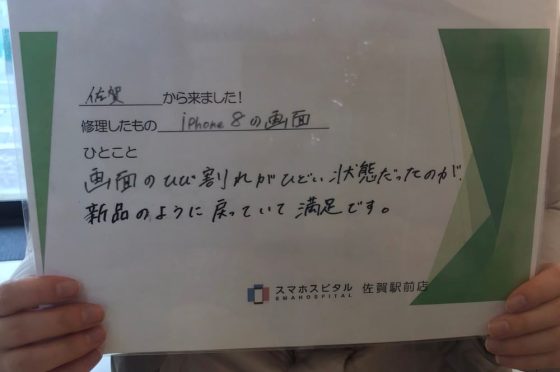 佐賀 から来ました！
修理したもの iPhone 8の画面
ひとこと
画面のひび割れがひどい状態だったのが、
新品のように戻っていて満足です。
スマホスピタル 佐賀駅前店
SMAHOSPITAL